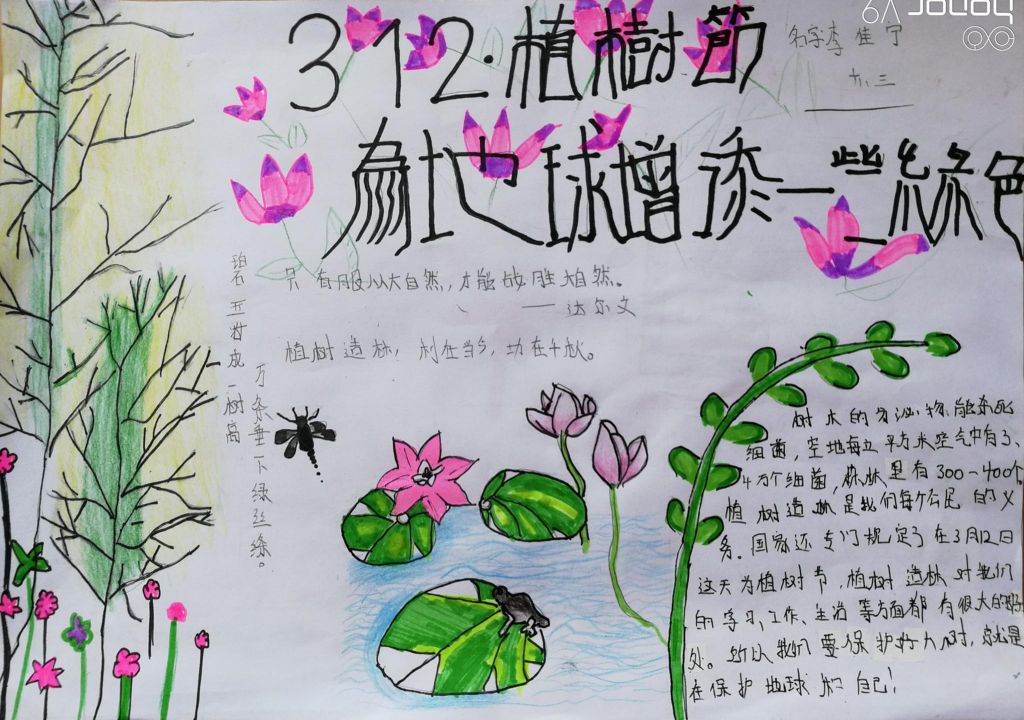 312·植樹節
名字李佳宁
六、三
為地球增添一些綠色
只有服从大自然,才能战胜大自然。
——达尔文
植树造林,利在当今,功在千秋。
碧玉妆成一树高
万条垂下绿丝绦。
树木的分泌物能杀死
细菌,空地每立平方米空气中有3、
4万个细菌,森林里有300-400个,
植树造林是我们每个公民的义
务。国家还专门规定了在3月12日
这天为植树节,植树造林对我们
的学习、工作、生活等方面都有很大的好
处。所以我们要保护好大树,你就是
在保护地球和自己!